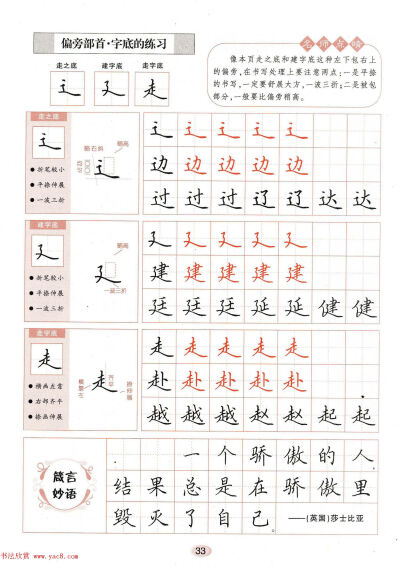 偏旁部首·字底的练习
走之底 建字底 走字底
辶 廴 走
名师点睛
像本页走之底和建字底这种左下包右上
的偏旁，在书写处理上要注意两点：一是平捺
的书写，一定要舒展大方，一波三折；二是被包
部分，一般要比偏旁稍高。
走之底
辶
折笔较小
平捺伸展
一波三折
稍高
辶 辶 辶 辶 辶
边 边 边 边 边
过 过 过 辽 辽 达 达
建字底
廴
折笔较小
平捺伸展
一波三折
稍高
一波三折
廴 廴 廴 廴 廴
建 建 建 建 建
廷 廷 廷 延 延 健 健
走字底
走
横画左靠
右部齐平
捺画伸展
齐平
走 走 走 走 走
赴 赴 赴 赴 赴
越 越 越 赵 赵 起 起
箴言
妙语
一个骄傲的人
结果总是在骄傲里
毁灭了自己。 ——(英国)莎士比亚
33
书法欣赏
www.yac8.com